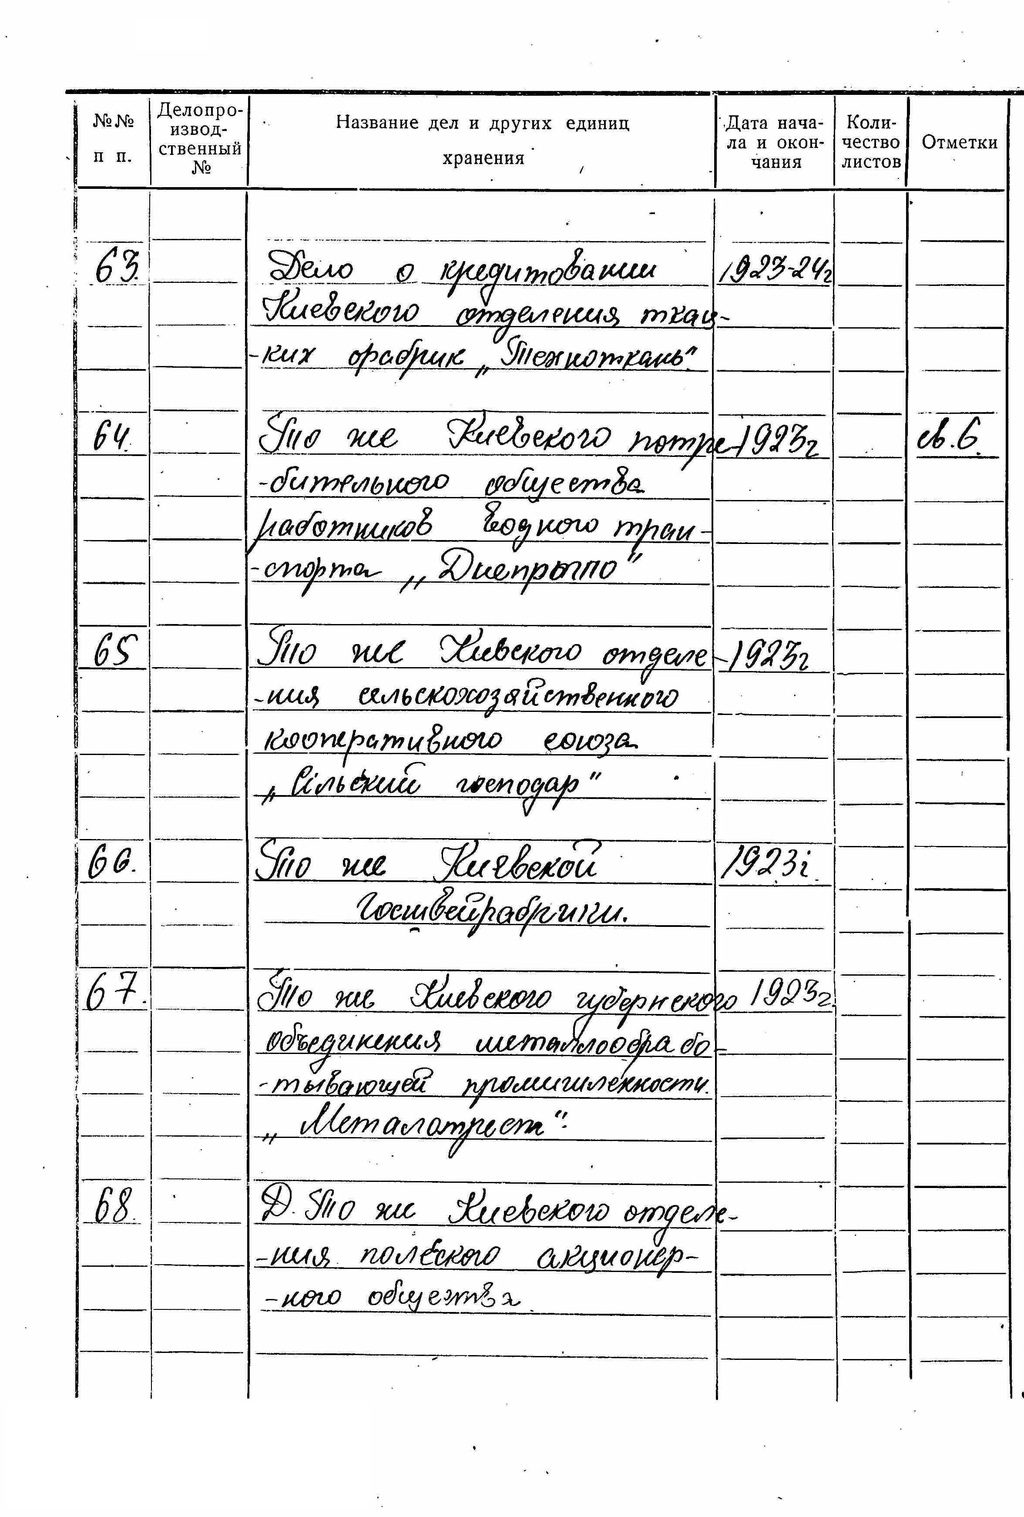 №№ п п. Делопроизводственный № Название дел и других единиц хранения Дата начала и окончания Количество листов Отметки
63. Дело о кредитовании 1923-24г
Киевского отделения ткац-
-ких фабрик „Техноткань"
64. То же Киевского потре- 1923г св.6.
-бительного общества
работников водного тран-
-спорта „Днепрыло"
65 То же Кивского отделе- 1923г
-ния сельскохозяйственного
кооперативного союза
„Сільский господар"
66. То же Киевской 1923г.
Госшвейфабрики.
67. То же Киевского губернского 1923г.
объединения металлообрабо-
-тывающей промишленности.
„Металотрест".
68. Д. То же Киевского отделе-
-ния полеского акционер-
-ного общества